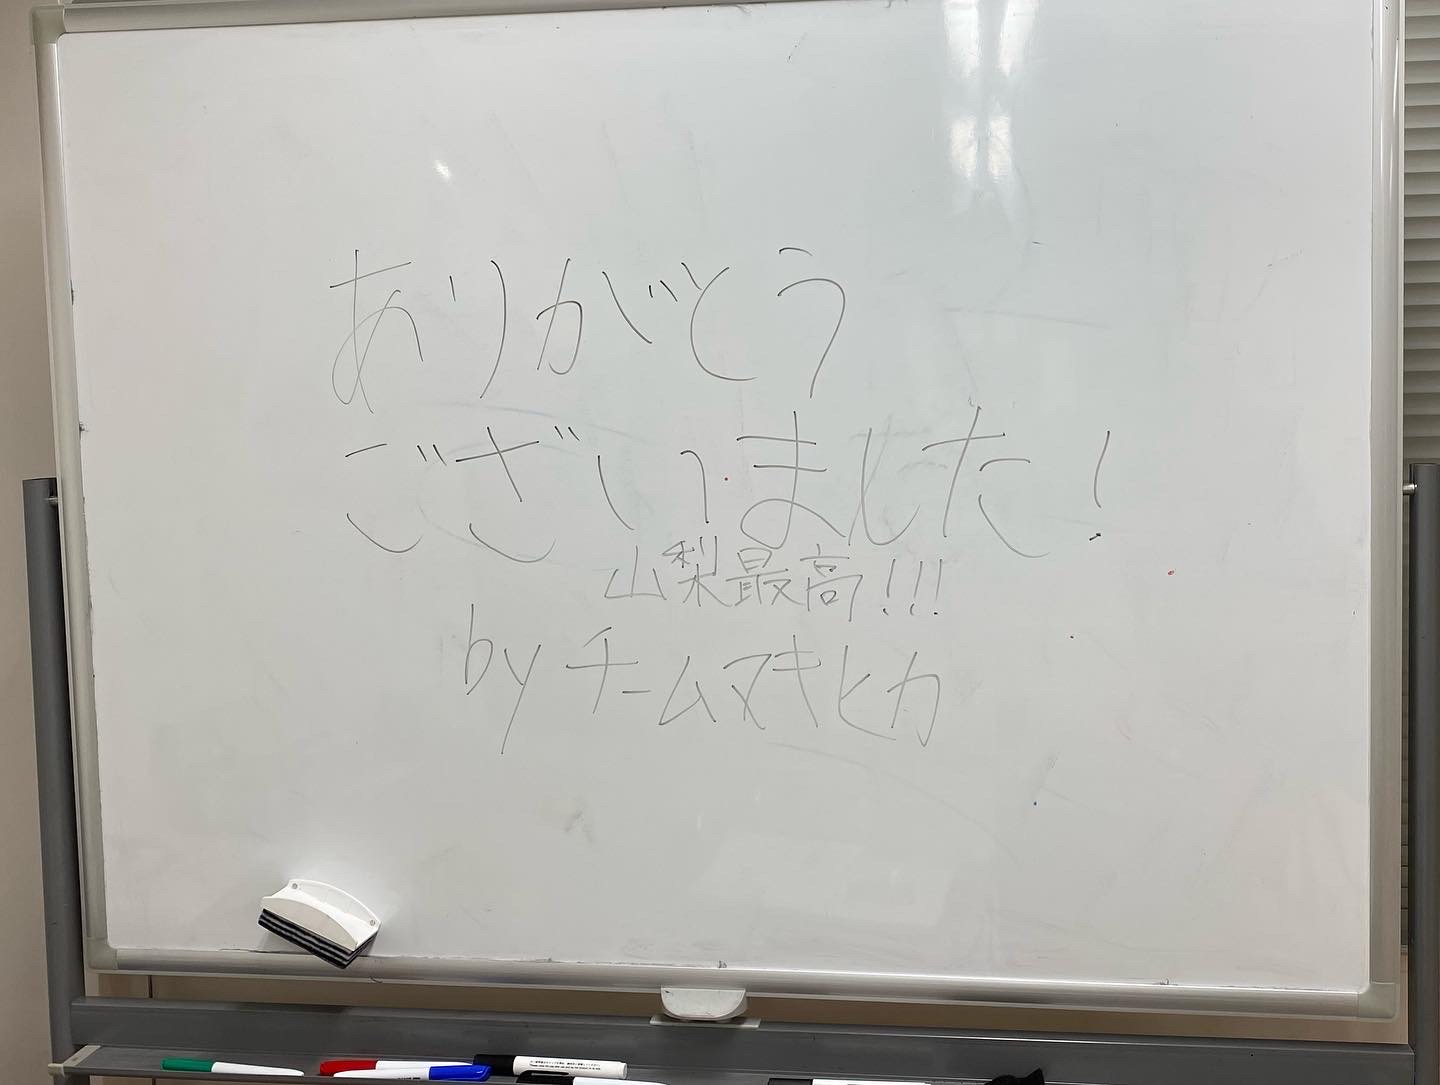 ありがとう
ございました！
山梨最高！！！
by チームマキヒカ